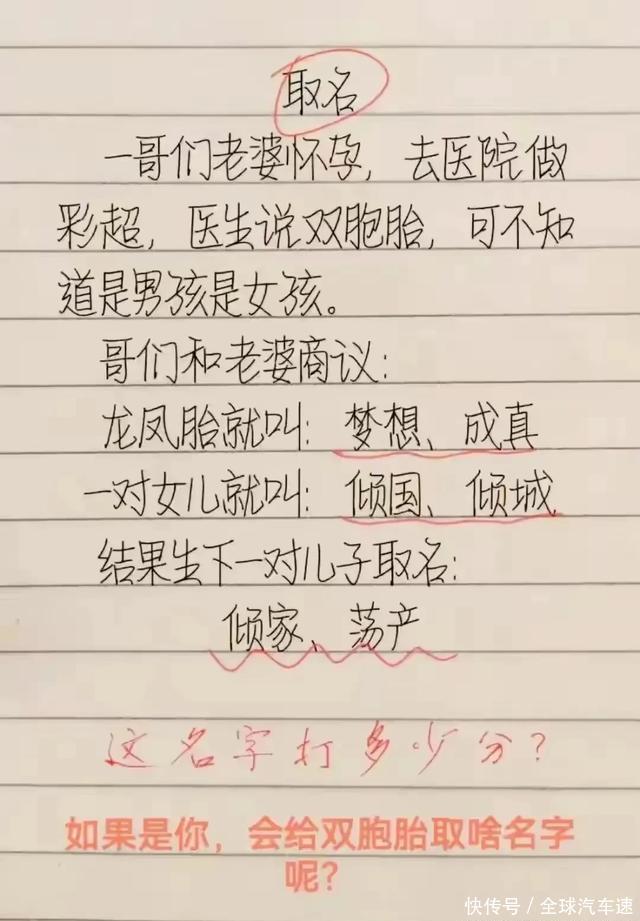 取名
一哥们老婆怀孕，去医院做
彩超，医生说双胞胎，可不知
道是男孩是女孩。
哥们和老婆商议：
龙凤胎就叫：梦想、成真
一对女儿就叫：倾国、倾城
结果生下一对儿子取名：
倾家、荡产
这名字打多少分？
如果是你，会给双胞胎取啥名字
呢？
快传号／全球汽车速